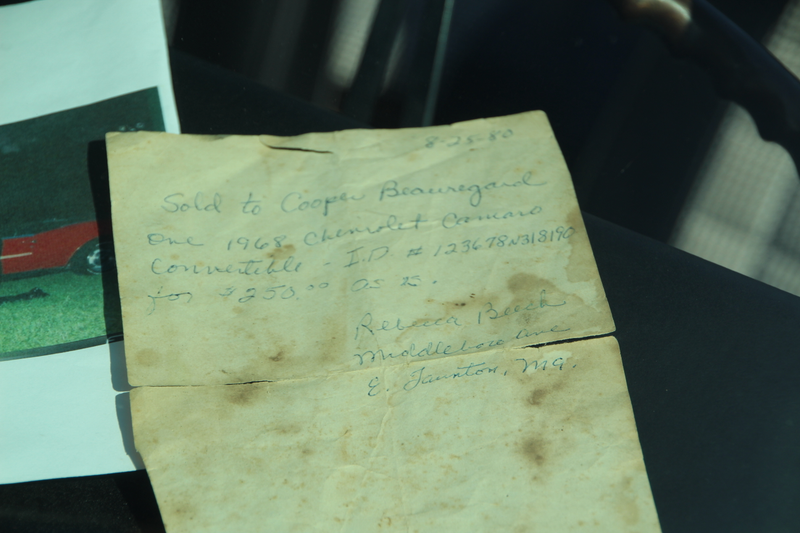 8-25-80
Sold to Cooper Beauregard
one 1968 Chevrolet Camaro
Convertible - I.D # 123678N318190
for $250.00 as is.
Rebecca
E. Taunton, Ma.